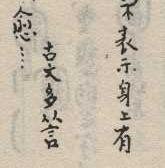 不表示身上有
古文多答
愈……